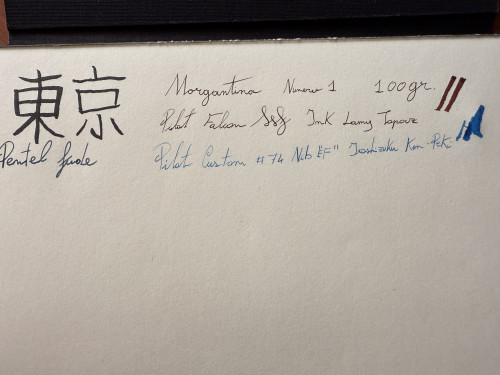 東京
Pentel fude
Morgantina Numero 1 100gr.
Pilot Falcon Ink Lamy Topaz
Pilot Custom #74 Nib EF" Iroshizuku Kon-Peki